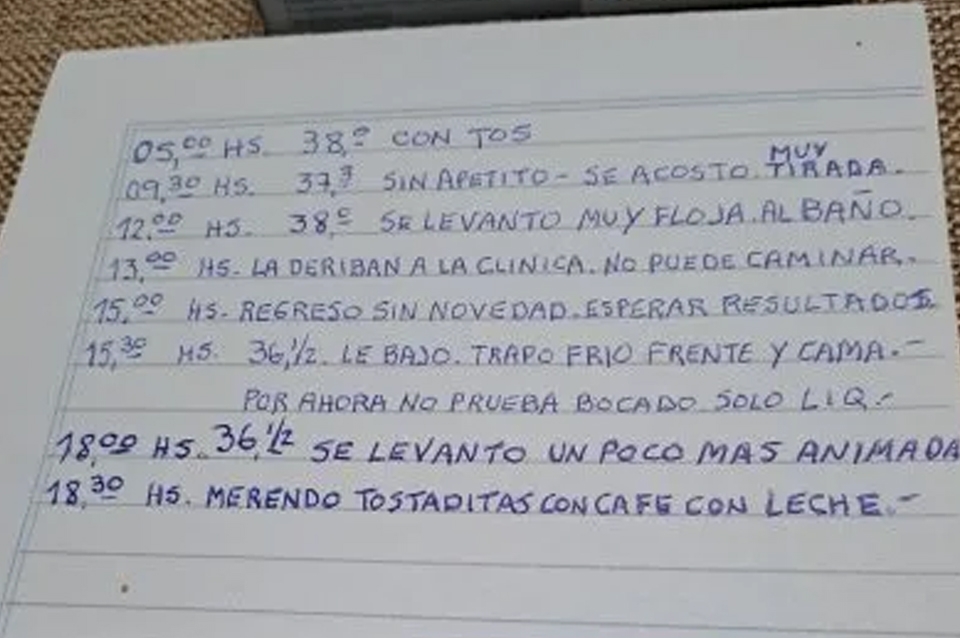 05,00 HS. 38,º CON TOS
09,30 HS. 37,3 SIN APETITO - SE ACOSTO MUY TIRADA.
12,00 HS. 38,º SE LEVANTO MUY FLOJA. AL BAÑO.
13,00 HS. LA DERIBAN A LA CLINICA. NO PUEDE CAMINAR.
15,00 HS. REGRESO SIN NOVEDAD. ESPERAR RESULTADOS
15,30 HS. 36,1/2. LE BAJO. TRAPO FRIO FRENTE Y CAMA.-
POR AHORA NO PRUEBA BOCADO SOLO LIQ.-
18,00 HS. 36,1/2 SE LEVANTO UN POCO MAS ANIMADA
18,30 HS. MERENDO TOSTADITAS CON CAFE CON LECHE.-